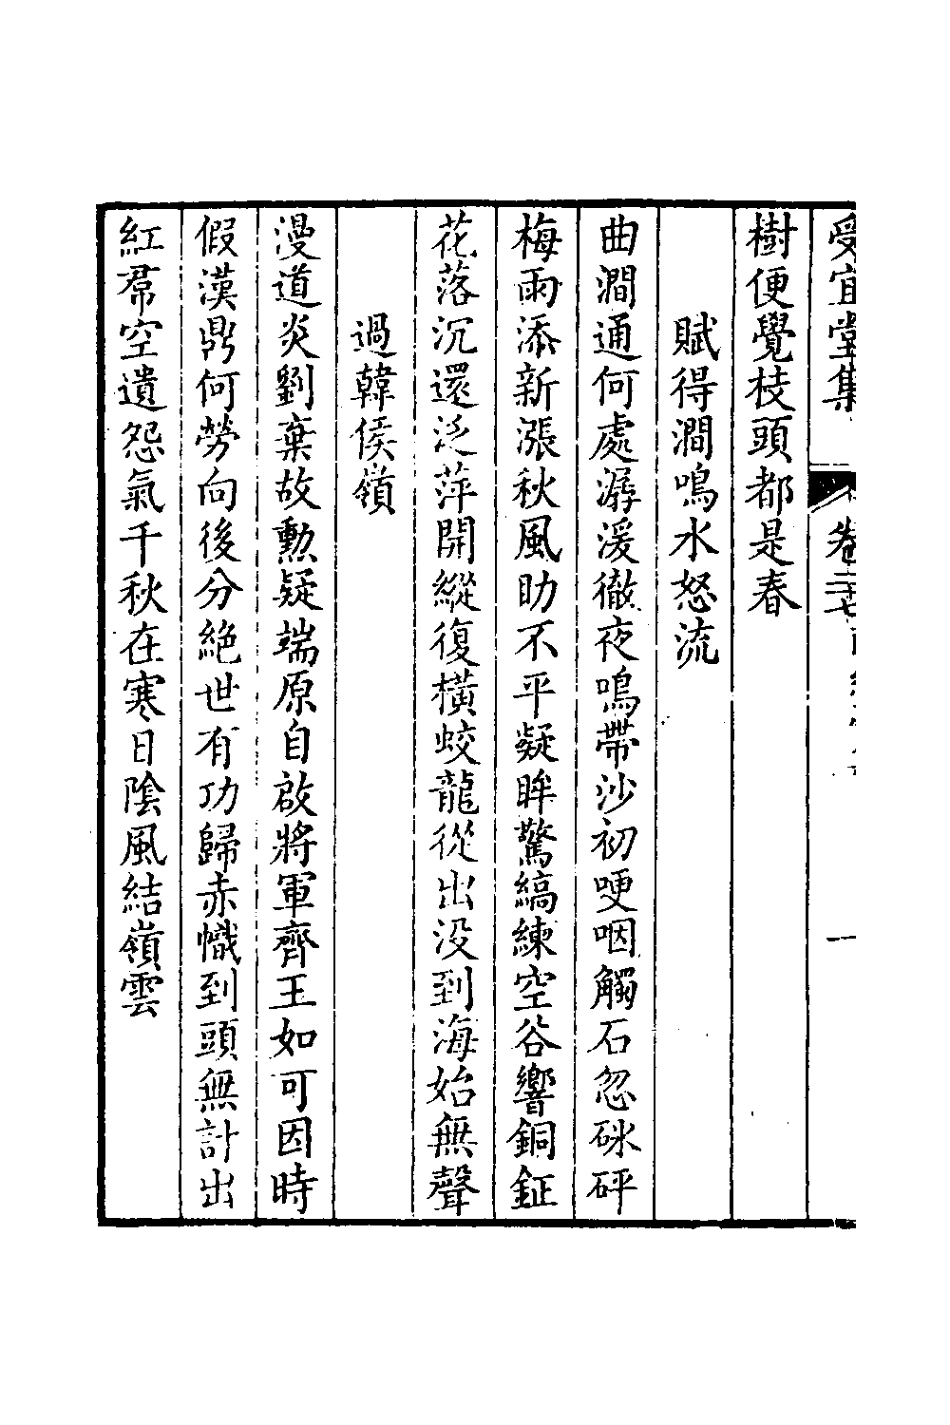 受宜堂集 卷三十七 一
樹便覺枝頭都是春
賦得澗鳴水怒流
曲澗通何處潺湲徹夜鳴帶沙初哽咽觸石忽砯砰
梅雨添新漲秋風助不平疑眸驚縞練空谷響銅鉦
花落沉還泛萍開縱復橫蛟龍從出没到海始無聲
過韓侯嶺
漫道炎劉棄故勲疑端原自啟將軍齊王如可因時
假漢鼎何勞向後分絶世有功歸赤幟到頭無計出
紅帬空遺怨氣千秋在寒日陰風結嶺雲